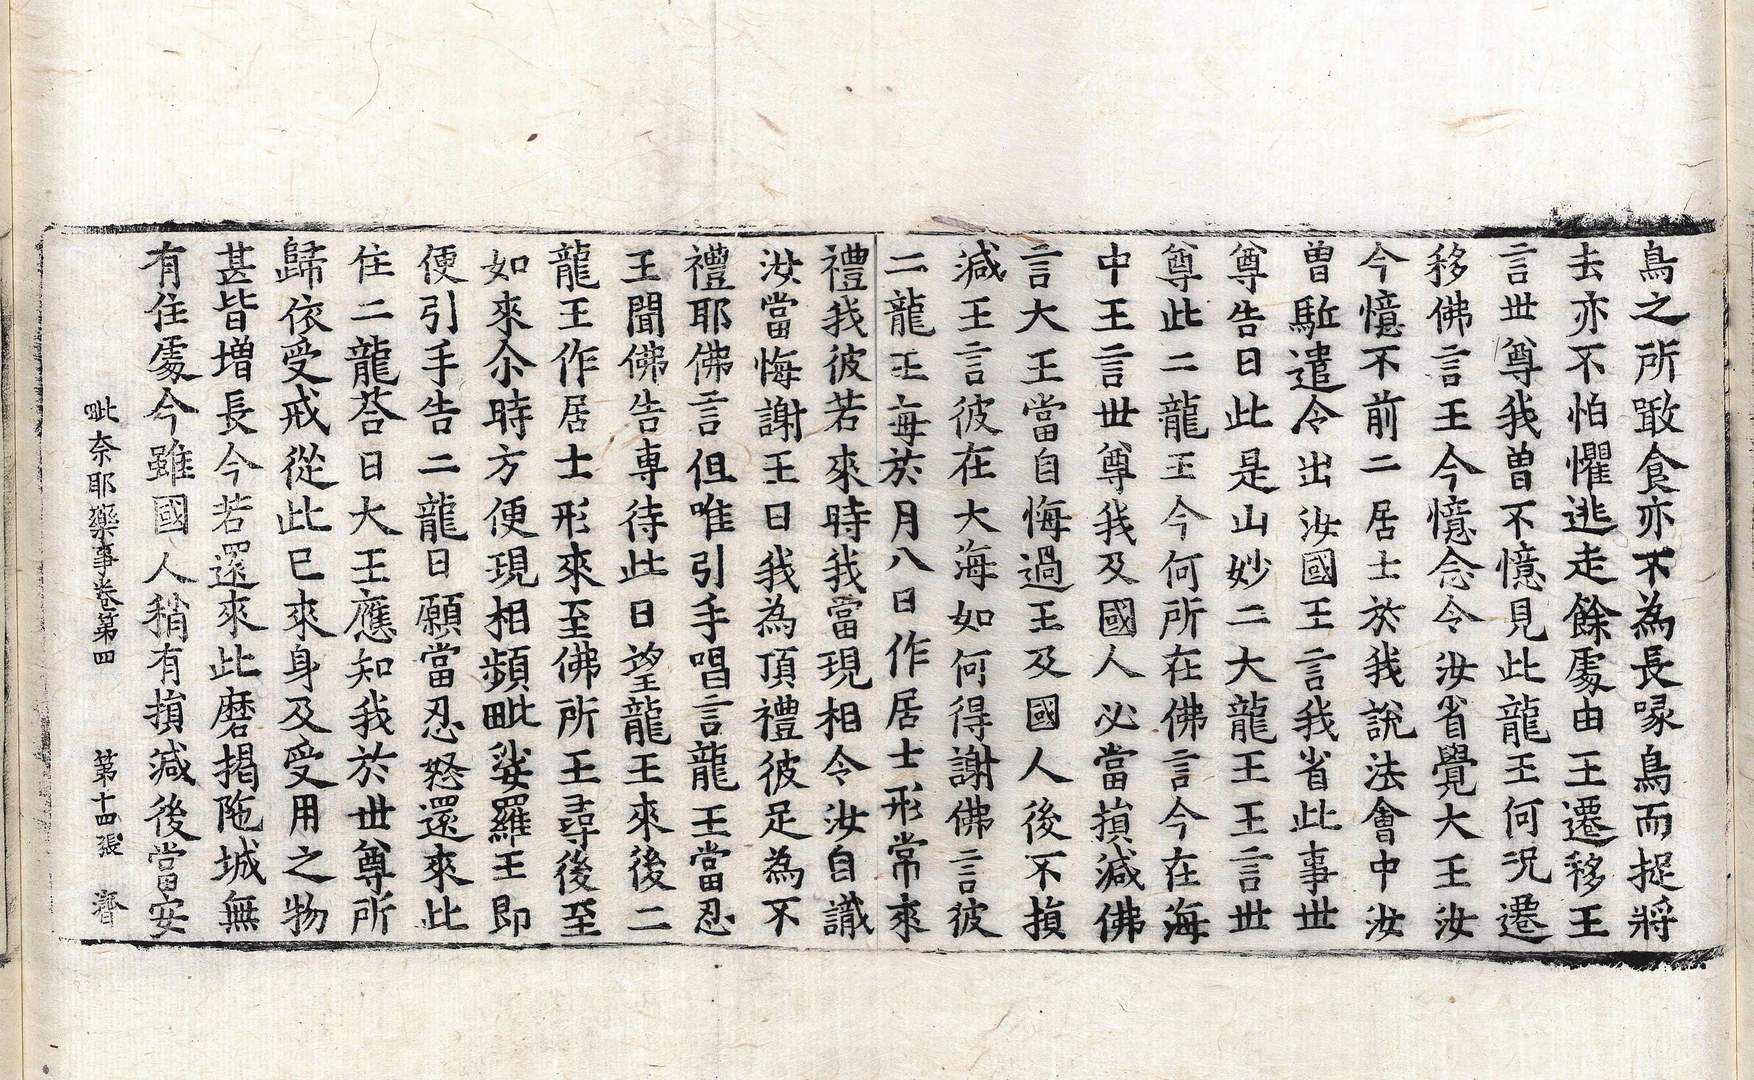 鳥之所噉食亦不為長喙鳥而捉將
去亦不怕懼逃走餘處由王遷移王
言世尊我曾不憶見此龍王何況遷
移佛言王今憶念令汝省覺大王汝
今憶不前二居士於我說法會中汝
曾駈遣令出汝國王言我省此事世
尊告曰此是山妙二大龍王王言世
尊此二龍王今何所在佛言今在海
中王言世尊我及國人必當損減佛
言大王當自悔過王及國人後不損
減王言彼在大海如何得謝佛言彼
二龍王每於月八日作居士形常來
禮我彼若來時我當現相令汝自識
汝當悔謝王曰我為頂禮彼足為不
禮耶佛言但唯引手唱言龍王當忍
王聞佛告專待此日望龍王來後二
龍王作居士形來至佛所王尋後至
如來尒時方便現相頻毗娑羅王即
便引手告二龍曰願當忍怒還來此
住二龍荅曰大王應知我於世尊所
歸依受戒從此已來身及受用之物
甚皆增長今若還來此磨揭陁城無
有住處今雖國人稍有損減後當安
毗奈耶藥事卷第四　第十四張　濟